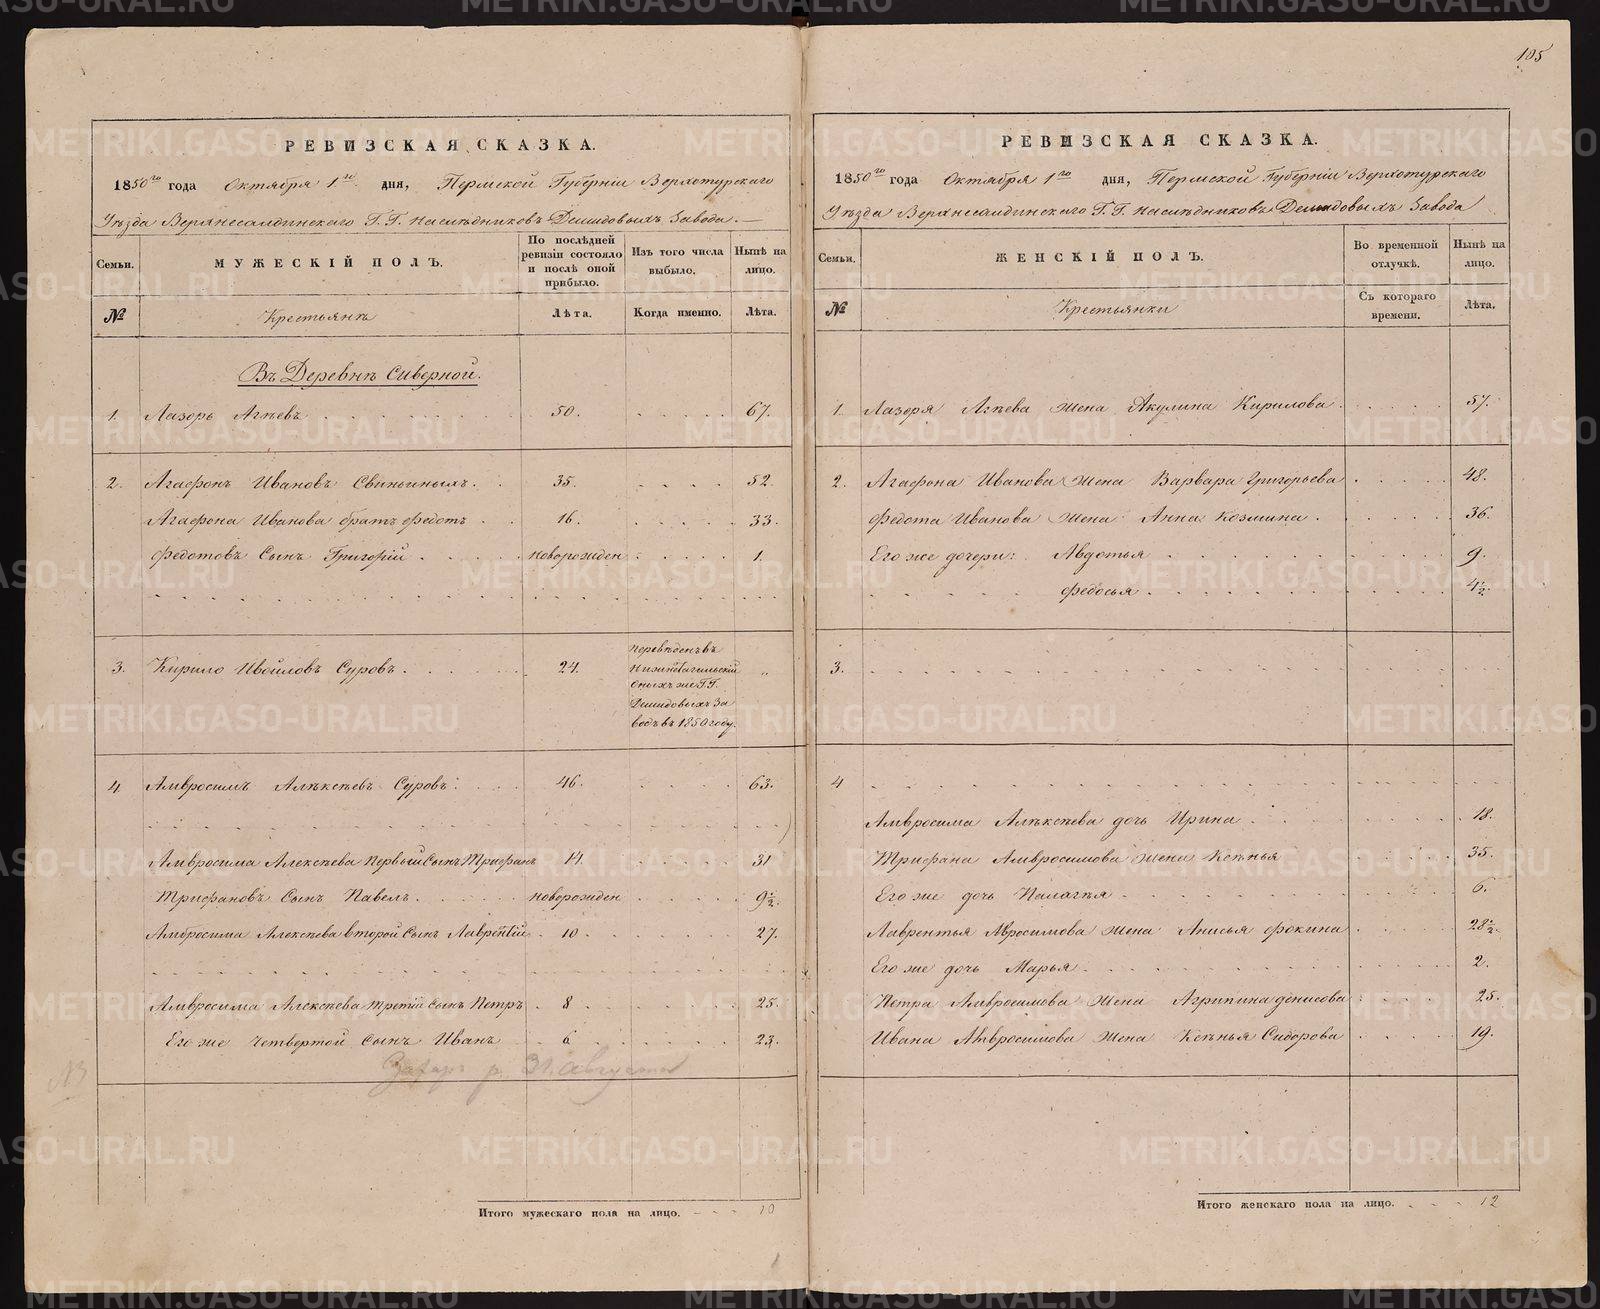 105
РЕВИЗСКАЯ СКАЗКА.
1850го года Октября 1го дня, Пермской Губерніи Верхотурскаго
Уѣзда Верхнесалдинскаго Г.Г. Наслѣдниковъ Демидовыхъ Завода.
Семьи.
МУЖЕСКІЙ ПОЛЪ.
По послѣдней ревизіи состояло и послѣ оной прибыло.
Изъ того числа выбыло.
Нынѣ на лицо.
№
Крестьянъ
Лѣта.
Когда именно.
Лѣта.
Въ Деревнѣ Сиверной.
1. Лазорь Агѣевъ 50. 67.
2. Агафонъ Ивановъ Свиньиныхъ. 35. 52.
Агафона Иванова братъ Федотъ 16. 33.
Федотовъ Сынъ Григорій новорожден 1.
3. Кирило Ивойловъ Суровъ. 24. „
переведенъ въ
Нижнетагильскій
оныхъ же Г.Г.
Демидовыхъ За
водъ въ 1850 году.
4. Амвросимъ Алѣксѣевъ Суровъ. 46. 63.
Амвросима Алексѣева первый Сынъ Трифанъ 14. 31
Трифановъ Сынъ Павелъ. новорожден 9½.
Амвросима Алексѣева второй Сынъ Лаврентій 10. 27.
Амвросима Алексѣева третій Сынъ Петръ 8 25.
Его же четвертой Сынъ Иванъ 6 23.
Захаръ р. 31. августа
№3
Итого мужескаго пола на лицо. 10
РЕВИЗСКАЯ СКАЗКА.
1850го года Октября 1го дня, Пермской Губерніи Верхотурскаго
Уѣзда Верхнесалдинскаго Г.Г. Наслѣдниковъ Демидовыхъ Завода
Семьи.
ЖЕНСКІЙ ПОЛЪ.
Во временной отлучкѣ.
Нынѣ на лицо.
№
Крестьянки
Съ котораго времени.
Лѣта.
1. Лазоря Агѣева жена Акулина Кирилова. 57.
2. Агафона Иванова жена Варвара Григорьева 48.
Федота Иванова жена Анна Козмина. 36.
Его же дочери: Авдотья 9.
Федосья 4½.
3.
4
Амвросима Алѣксѣева дочь Ирина 18.
Трифана Амвросимова жена Ксѣнья 35.
Его же дочь Палагѣя 6.
Лаврентья Авросимова жена Анисья Фокина 28½.
Его же дочь Марья 2.
Петра Амвросимова жена Агрипина Денисова 25.
Ивана Амвросимова жена Ксѣнья Сидорова 19.
Итого женскаго пола на лицо. 12
METRIKI.GASO-URAL.RU